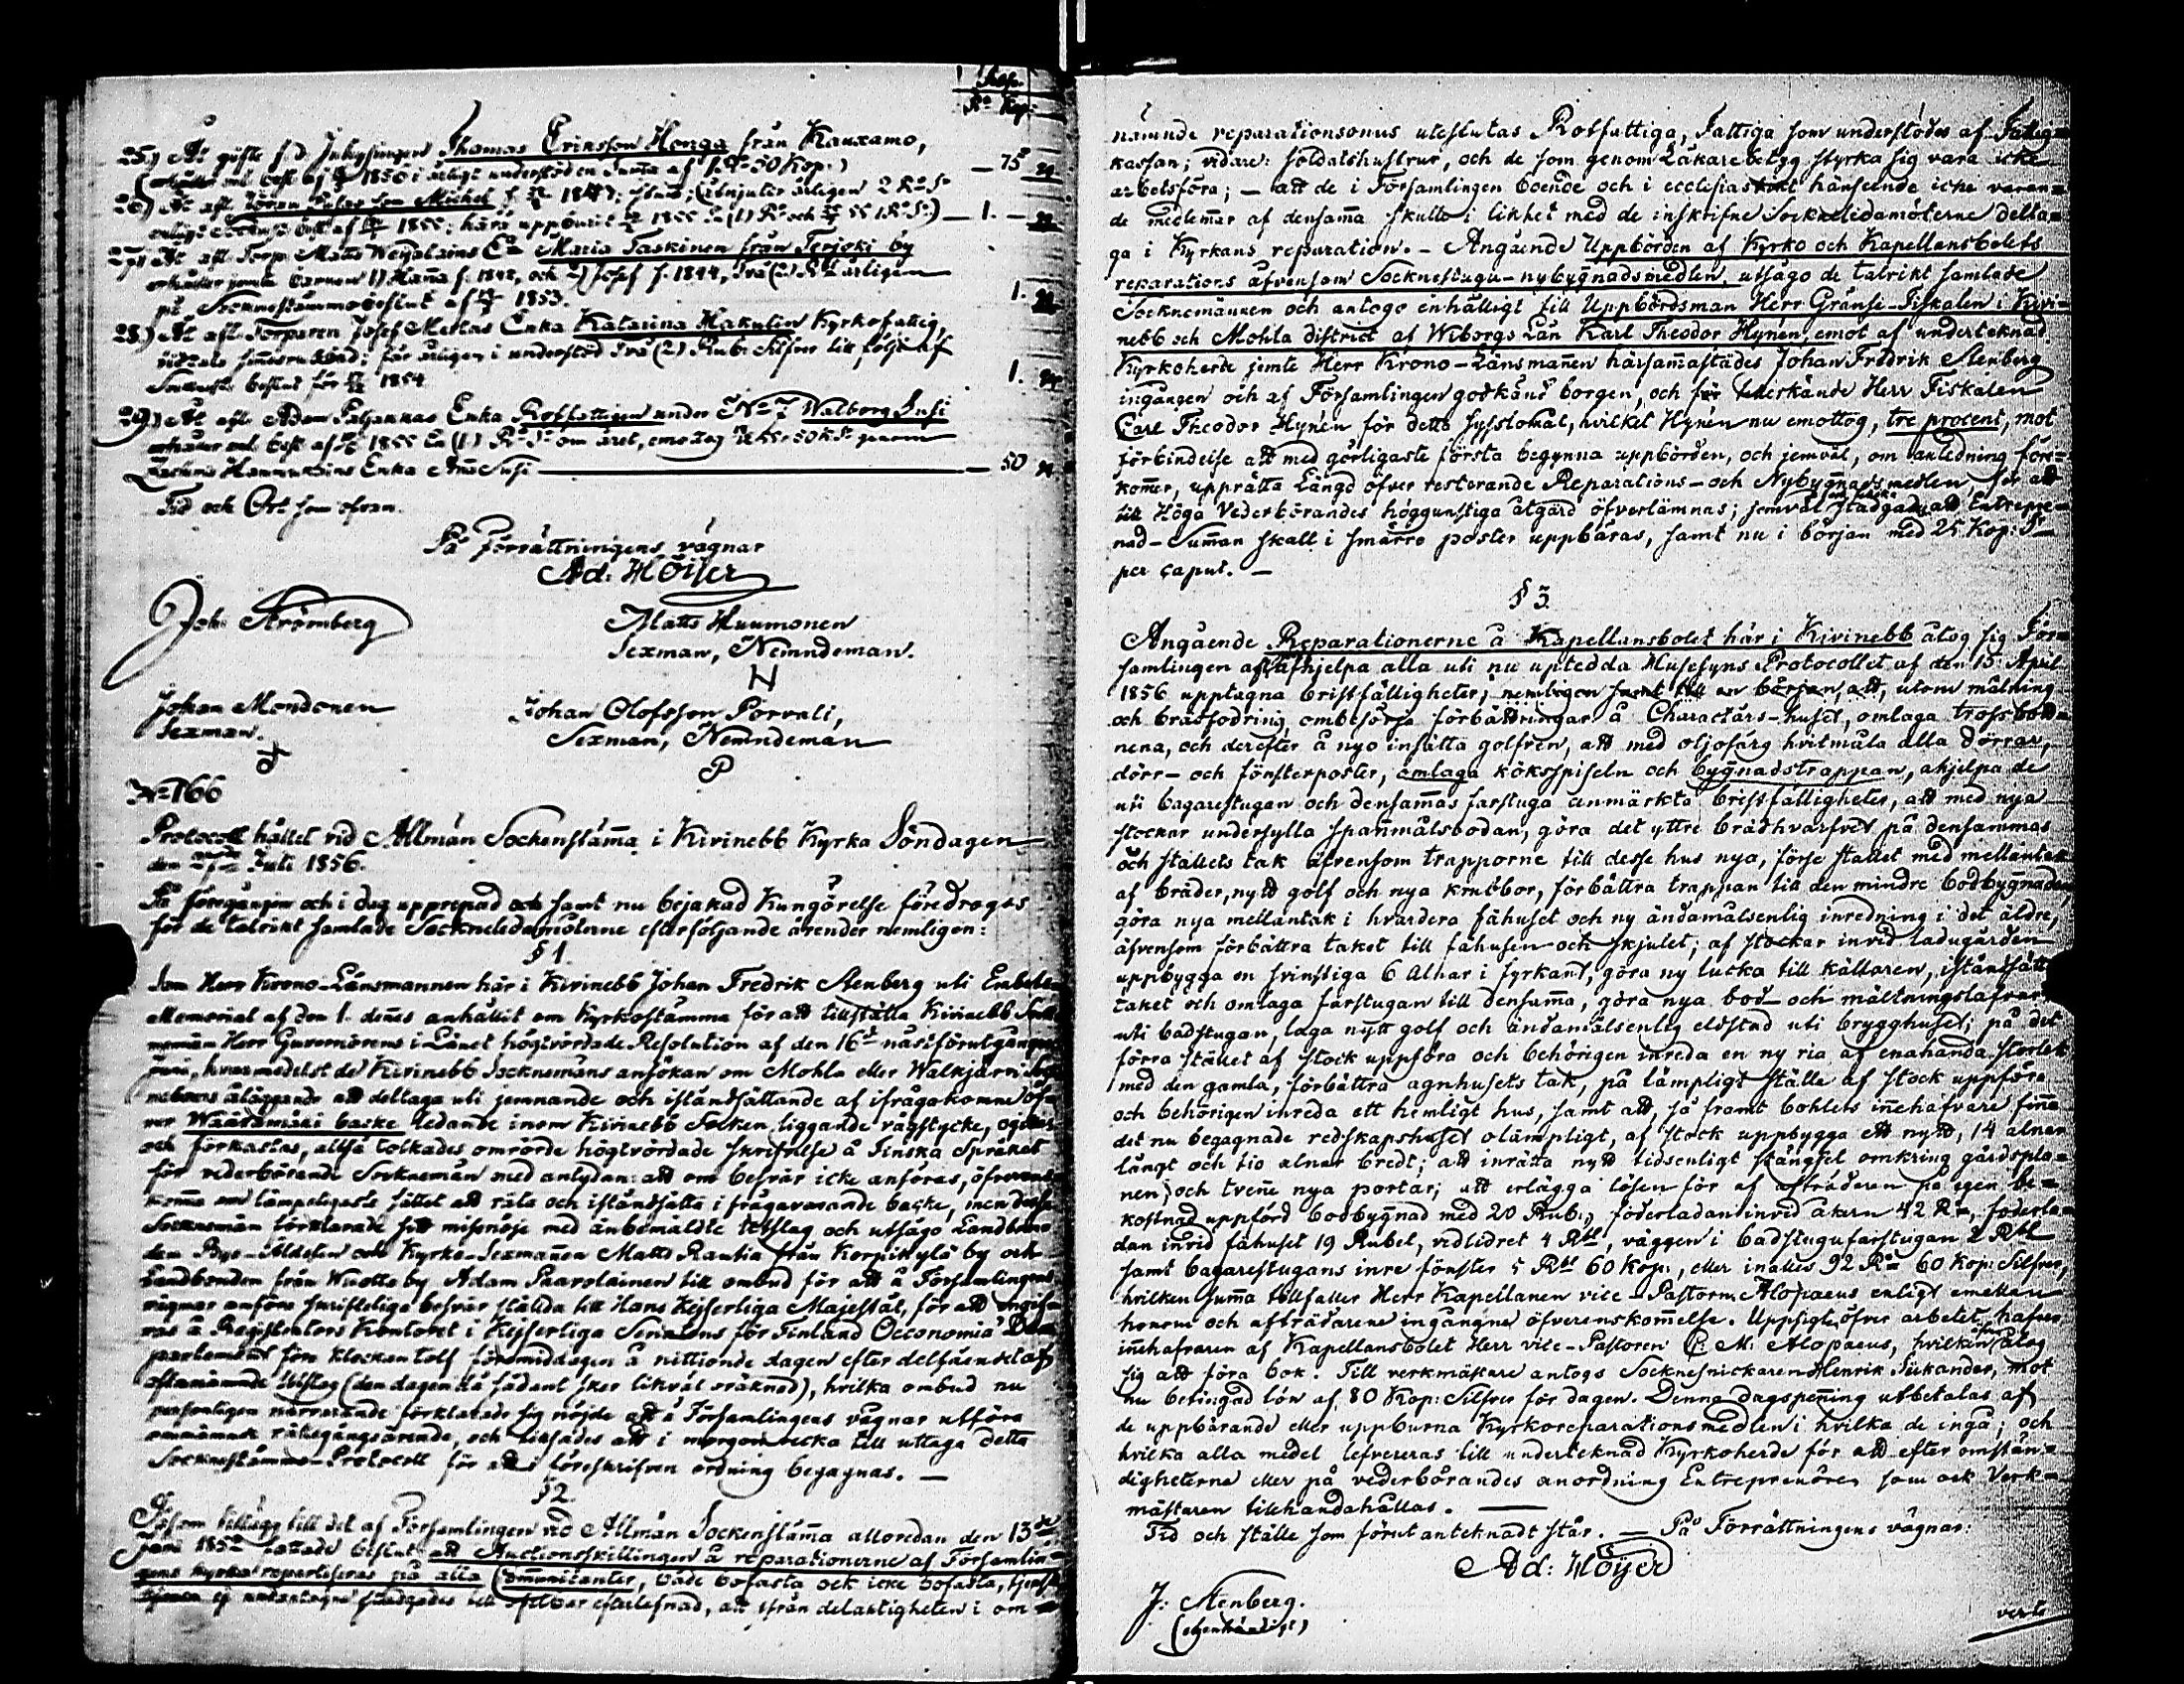 Rb Kop.
25.) At gifte f.d. Inhysingen Thomas Eriksson Honga från Kauxamo,
1850 årligt understöden Summa af 1 Rb 50 Kop.) — 75
26) At afl. Göran son Michel f. 1847; (åtnjuter årligen 2 Rb Sr
enligt Sockenst. beslut af 1855; härå uppburit 1855 En (1) Rb och 55 1 Rb Sr) — 1. —
27) At afl. Torp. Matts Weijalains Ea Maria Taskinen från Terjoki by
erhåller jemte barnen 1) Hanna f. 1842, och 2) Josef f. 1844, två (2) Rbl årligen
på Sockenstämmobeslut af 1853. 1.
28.) At afl. Torparen Josef Mertas Enka Katarina Hakulin Kyrkofattig,
får årligen i understöd två (2) Rub. Silfver till följe af
Sockenst. beslut för 1854 1.
29) At afl. Adam Paljannas Enka Rotfattigen under No 7 Walborg Susi
erhåller enl. besl. af 1855 En (1) Rb Sr om året, emottog 50 K. Sr genom
Hannukains Enka Anna Susi — 50
Tid och Ort som ofvan.
På Förrättningens vägnar
Ad: Höijer
Joh: Strömberg
Matts Huumonen
Sexman, Nemndeman.
Johan Mondonen
Sexman.
Johan Olofsson Porvali,
Sexman, Nemndeman
P
No 166
Protocoll hållet vid Allmän Sockenstämma i Kivinebb Kyrka Söndagen
den 27de Juli 1856.
På föregången och i dag upprepad och samt nu bejakad Kungörelse föredrogs
för de talrikt samlade Socknaledamöterne efterföljande ärender nemligen:
§ 1.
Som Herr Krono-Länsmannen här i Kivinebb Johan Fredrik Stenberg uti Embets-
Memorial af den 1. dennes anhållit om Kyrkostämma för att tillställa Kivinebb Sock-
nemän Herr Guvernörens i Länet högtvördade Resolution af den 16de nästförutgångne
Juni, hvarmedelst de Kivinebb Socknemäns ansökan om Mohla eller Walkjärvi Sock-
neboers åläggande att deltaga uti jemnande och iståndsättande af ifrågakomne öf-
ver Wäärämäki backe ledande inom Kivinebb Socken liggande vägstycke, ogillas
och förkastas, alltså tolkades omrörde högtvördade skrifvelse å Finska Språket
för vederbörande Socknemän med antydan: att om besvär icke anföras, öfverens-
komma om lämpeligaste sättet att räta och iståndsätta ifrågavarande backe, men desse
Socknemän förklarade sitt missnöje med änbemäldte utslag och utsågo Landbon-
den Bye-Äldsten och Kyrko-Sexmannen Matts Rantia från Korpikylä by och
Landbonden från Wuotta by Adam Paavolainen till ombud för att å Församlingens
vägnar anföra skrifteliga besvär stälda till Hans Kejserliga Majestät, för att ingif-
vas å Registrators Kontoret i Kejserliga Senatens för Finland Oeconomiæ De-
partement före klockan tolf förmiddagen å nittionde dagen efter delfåendet af
oftanämnde utslag (den dagen då sådant sker likväl oräknad), hvilka ombud nu
personligen närvarande förklarade sig nöjde att å Församlingens vägnar utföra
omnämnde rättegångsärende, och lofvades att i morgon vecka till uttaga detta
Sockenstämmo-Protocoll för att i föreskrifven ordning begagnas. —
§ 2.
Såsom tillägg till det af Församlingen vid Allmän Sockenstämma alloredan den 13de
Juni 1852 fattade beslut att Auctionsskillingen å reparationerne af Församlin-
gens kyrka repartiseras på alla Communicanter, både bofasta och icke bofasta, tjenste-
ej undantagne stadgades till efterlefnad, att ifrån delaktigheten i om-
nämnde reparationsonus uteslutas Rotfattiga, Fattiga som understödes af Fattig-
kassan; vidare: soldatshustrur, och de som genom Läkare betyg styrka sig vara icke
arbetsföra; — att de i Församlingen boende och i ecclesiastikt hänseende icke varan-
de medlemmar af densamma skulle i likhet med de inskrifne Socknaledamöterne delta-
ga i Kyrkans reparation. — Angående Uppbörden af Kyrko och Kapellansbolets
reparations äfvensom Sockenstugu-nybygnadsmedlen, utsågo de talrikt samlade
Socknemännen och antogo enhälligt till Uppbördsman Herr Gränse-Fiskalen i Kivi-
nebb och Mohla district af Wiborgs Län Karl Theodor Hynén, emot af undertecknad
Kyrkoherde jemte Herr Krono-Länsmannen härsammastädes Johan Fredrik Stenberg
ingången och af Församlingen godkänd borgen, och för tillerkände Herr Fiskalen
Carl Theodor Hynén för detta sysslomål, hvilket Hynén nu emottog, tre procent, mot
förbindelse att med görligaste första begynna uppbörden, och jemväl, om anledning före-
kommer, upprätta Längd öfver resterande Reparations- och Nybygnadsmedlen, för att
till Höga Vederbörandes höggunstiga åtgärd öfverlämnas; jemväl stadgades att Entrepre-
nad-Summan skall i smärre poster uppbäras, samt nu i början med 25 Kop: Sr
per caput. —
§ 3
Angående Reparationerne å Kapellansbolet här i Kivinebb åtog sig För-
samlingen att afhjelpa alla uti nu uptedda Husesyns Protocollet af den 15 April
1856 upptagna bristfälligheter, nemligen samt till en början, att, utom målning
och brädfodring ombesörja förbättringar å Characters-huset, omlaga trossbott-
nena, och derefter å nyo insätta golfven, att med oljofärg hvitmåla alla dörrar,
dörr- och fönsterposter, omlaga köksspiseln och bygnadstrappan, afhjelpa de
uti bagarestugan och densammas farstuga anmärkta bristfälligheter, att med nya
stockar undersylla spannmålsbodan, göra det yttre brädhvarfvet på densammas
och stallets tak äfvensom trapporne till desse hus nya, förse stallet med mellantak
af bräder, nytt golf och nya krubbor, förbättra trappan till den mindre bodbygnaden,
göra nya mellantak i hvardera fähuset och ny ändamålsenlig inredning i det äldre,
äfvensom förbättra taket till fähusen och skjulet; af stockar invid ladugården
uppbygga en svinstiga 6 Alnar i fyrkant, göra ny lucka till källaren, iståndsätta
taket och omlaga farstugan till densamma, göra nya bod- och mältningslafvar
uti badstugan, laga nytt golf och ändamålsenlig eldstad uti brygghuset; på det
förra stället af stock uppföra och behörigen inreda en ny ria af enahanda storlek
med den gamla, förbättra agnhusets tak, på lämpligt ställe af stock uppföra
och behörigen inreda ett hemligt hus, samt att, så framt bohlets innehafvare finna
det nu begagnade redskapshuset olämpligt, af stock uppbygga ett nytt, 14 alnar
långt och tio alnar bredt; att inrätta nytt tidsenligt stängsel omkring gårdspla-
nen och tvenne nya portar; att erlägga lösen för af afträdaren på egen be-
kostnad uppförd bodbygnad med 20 Rub:, foderladan invid åkern 42 Ra, foderla-
dan invid fähuset 19 Rubel, vedlidret 4 Rbl, väggen i badstugufarstugan 2 Rbl
samt bagarestugans inre fönster 5 Rbl 60 Kop:, eller inalles 92 Ra 60 Kop: Silfver,
hvilken summa tillfaller Herr Kapellanen vice-Pastorn Alopaeus enligt emellan
honom och afträdarene ingången öfverenskommelse. Uppsigt öfver arbetet hafver
innehafvaren af Kapellansbolet Herr vice-Pastoren P. M. Alopaeus, hvilken åtog
sig att föra bok. Till verkmästare antogs Sockensnickaren Henrik Siikander, mot
nu betingad lön af 80 Kop: Silfver för dagen. Denna dagspenning utbetalas af
de uppbärande eller uppburna Kyrkoreparationsmedlen i hvilka de ingå; och
hvilka alla medel lefvereras till undertecknad Kyrkoherde för att efter omstän-
digheterne eller på vederbörandes anordning Entreprenören som ock Verk-
mästaren tillhandahållas. —
Tid och ställe som förut anteknadt står. — På Förrättningens vägnar:
Ad: Höijer
J: Stenberg.
(egenhändigt)
verte